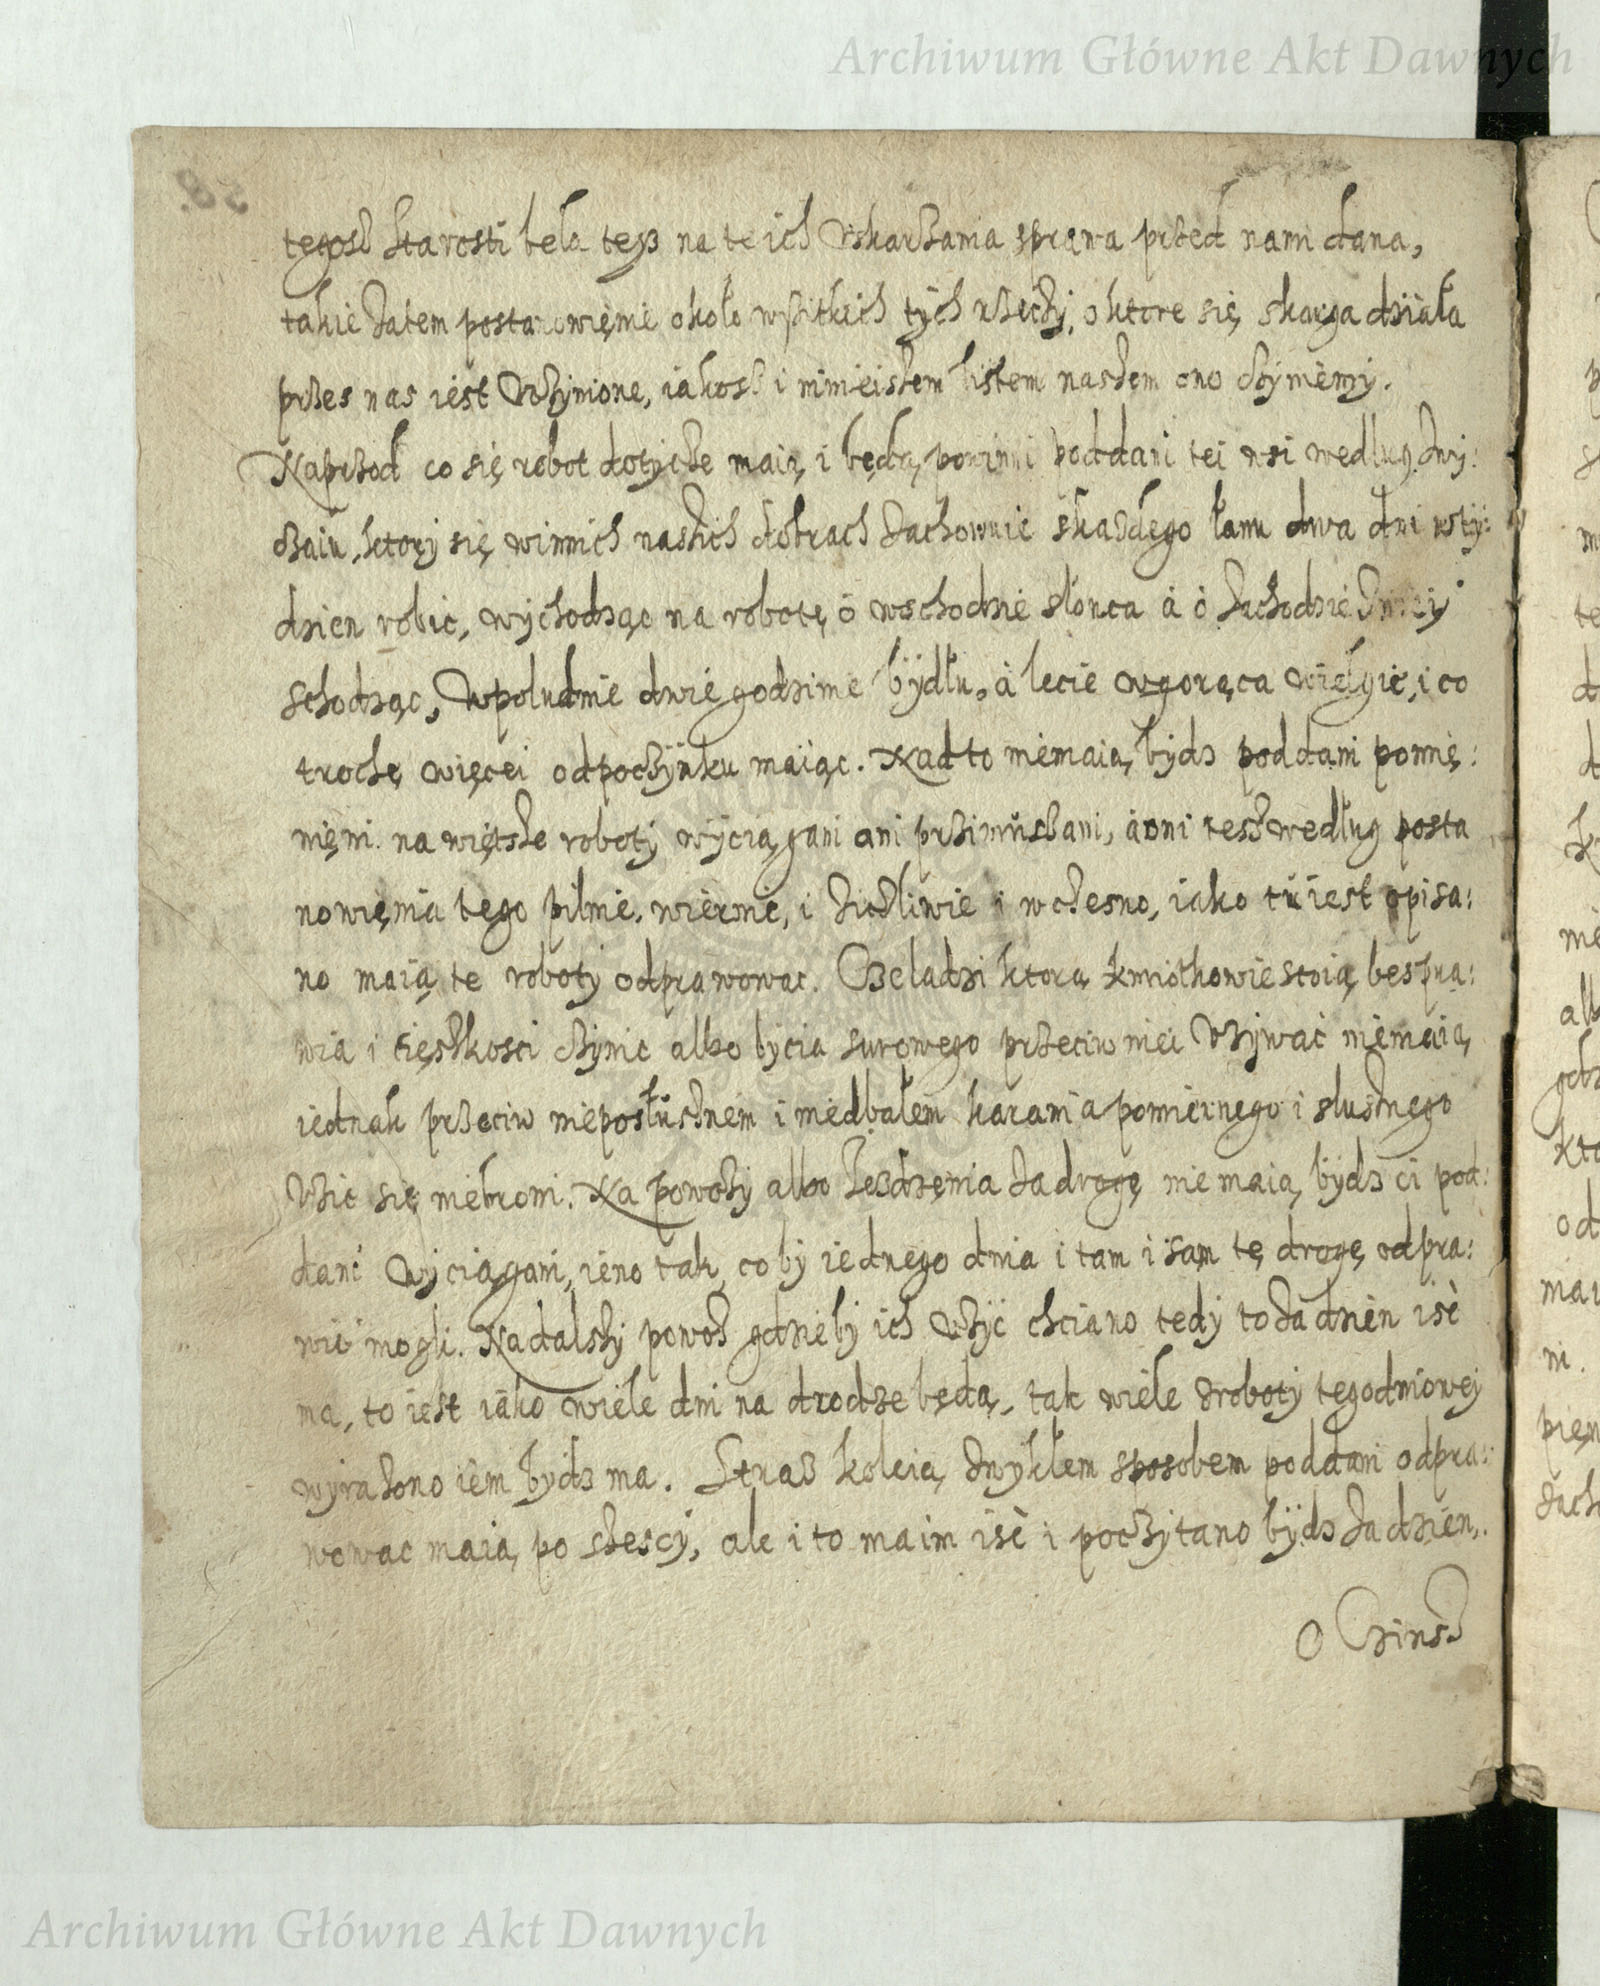 Archiwum Główne Akt Dawnych
tegosz starosti bela tesz na te ich Uskarzania sprawa przed nami dana,
takie zatem postanowięnie około wszitkich tÿch rzeczÿ, o ktore się skarga działa
przes nas iest Uczynione, iakosz i ninieiszem listem naszem ono czÿniemÿ.
Naprzod co się robot dotycze maią i będą powinni poddani tei wsi według zwÿ:
czaiu, ktorÿ się winnich naszich dobrach zachowuie skazdego łanu dwa dni wtÿ:
dzien robic, wÿchodząc na robotę o wschodzie słonca à o zachodzie
schodząc, Wpoludnie dwie godzinie bÿdłu, à lecie wgorąca wielgie, i co
trochę więcei odpoczÿnku maiąc. Nad to niemaią bÿdz poddani pomie:
nięni na większe robotÿ wÿciągani ani przimuszani, à oni tesz według posta
nowięnia tego pilnie, wiernie, i ziczliwie i wczesno, iako tu iest opisa:
no maią te robotÿ odprawowac. Czeladzi ktorą kmiotkowie stoią bespra:
wia i cięszkosci czÿnic albo bÿcia surowego przeciw niei Uzÿwać niemaią,
iednak przeciw nieposłusznem i niedbałem karania pomiernego i slusznego
Uzic się niebroni. Na powozÿ albo iezdzęnia za drogę nie maią bÿdz ci pod:
dani wÿciągani, ieno tak, co bÿ iednego dnia i tam i sam tę drogę odpra:
wić mogli. Na dalszÿ powoz gdzie bÿ ich Użÿć chciano tedÿ to za dzień isć
ma, to iest iako wiele dni na drodze będą, tak wiele z robotÿ tegodniowej
wÿrażono iem bÿdz ma. Straz koleią zwÿkłem sposobem poddani odpra:
wowac maią po szescÿ, ale i to ma im isć i poczÿtano bÿdz za dzień.
O Czinsz
Archiwum Główne Akt Dawnych